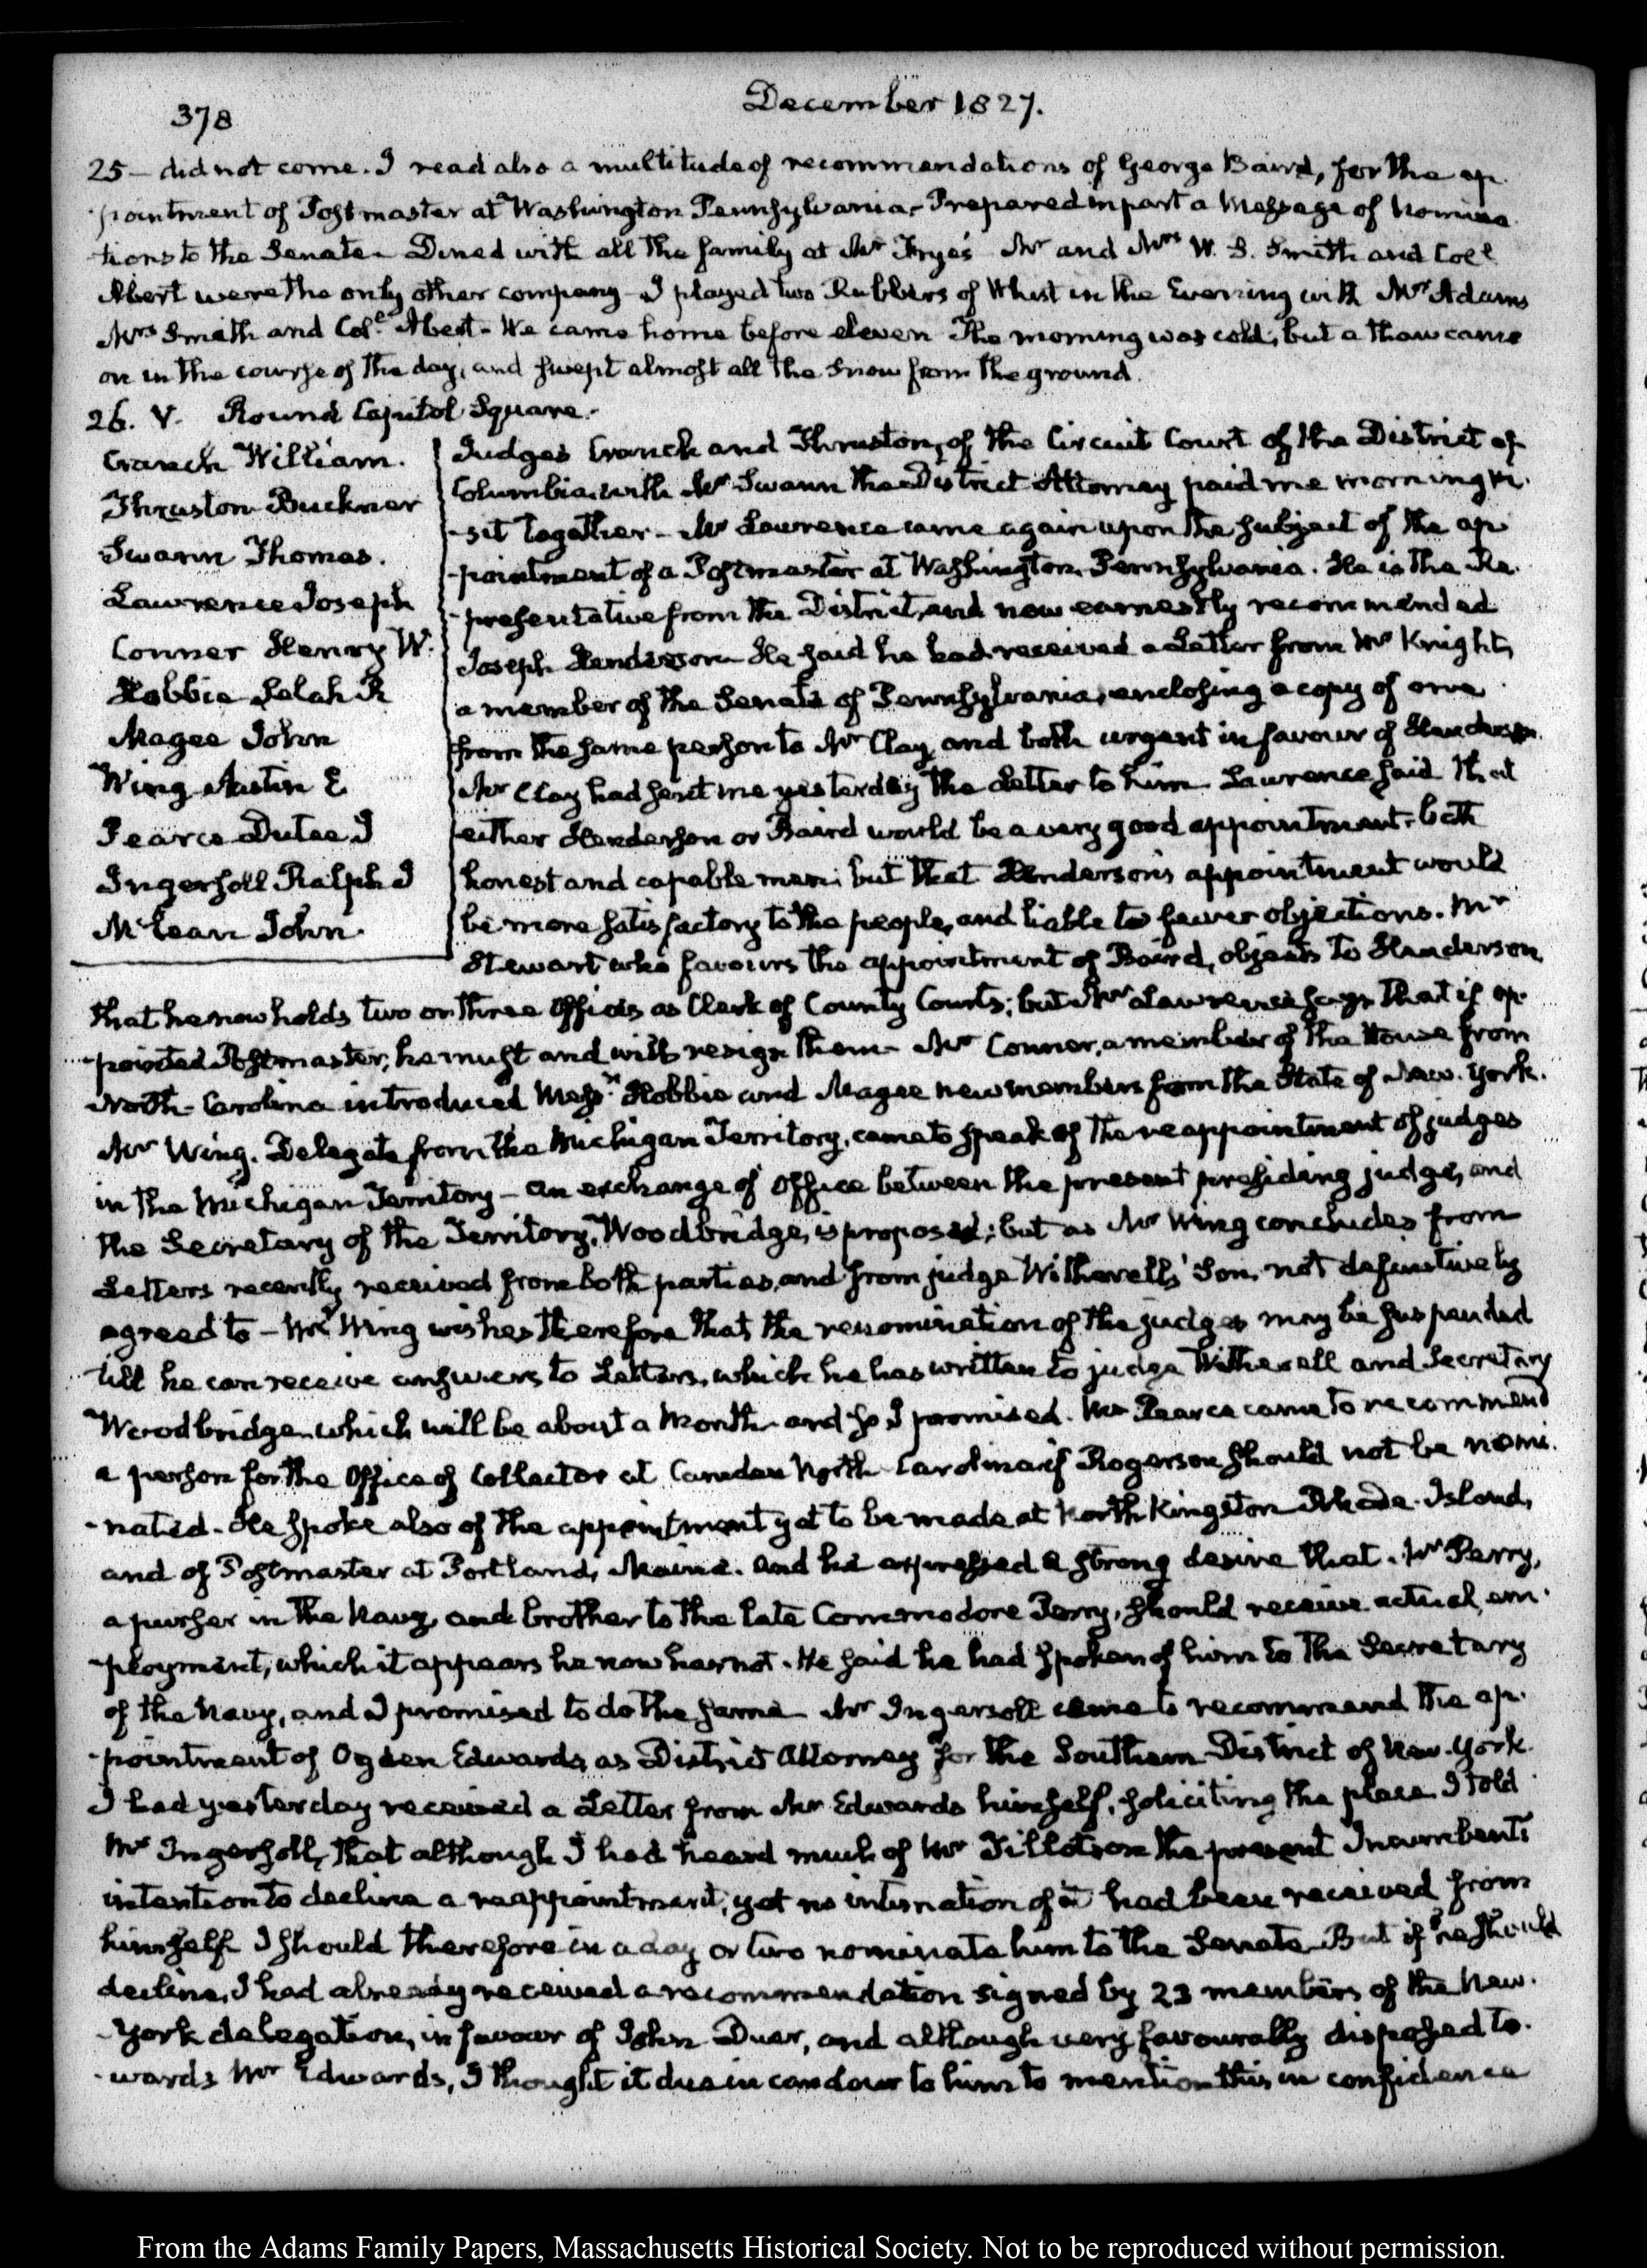 378
December 1827.
25 – did not come. I read also a multitude of recommendations of George Baird, for the ap-
-pointment of Postmaster at Washington Pennsylvania – Prepared in part a Message of Nomina-
tions to the Senate – Dined with all the family at Mr Frye's Mr and Mrs W. S. Smith and Coll
Abert were the only other company – I played two Rubbers of Whist in the Evening with Mrs Adams
Mrs Smith and Col.l Abert – We came home before eleven The morning was cold; but a thaw came
on in the course of the day, and swept almost all the Snow from the ground.
26. V. Round Capitol Square –
Cranch William.
Thruston Buckner
Swann Thomas.
Lawrence Joseph
Conner Henry W.
Hobbie Selah R
Magee John
Wing Austin E
Pearce Dutee J
Ingersoll Ralph I
McLean John.
Judges Cranch and Thruston, of the Circuit Court of the District of
Columbia with Mr Swann the District Attorney paid me morning vi-
-sit together – Mr Lawrence came again upon the subject of the ap-
-pointment of a Postmaster at Washington Pennsylvania. He is the Re-
-presentative from the District, and now earnestly recommended
Joseph Henderson – He said he had received a Letter from Mr Knight,
a member of the Senate of Pennsylvania, enclosing a copy of one
from the same person to Mr Clay, and both urgent in favour of Henderson.
Mr Clay had sent me yesterday the Letter to him – Lawrence said that
either Henderson or Baird would be a very good appointment – both
honest and capable men: but that Henderson's appointment would
be more satisfactory to the people, and liable to fewer objections. Mr
Stewart who favours the appointment of Baird, objects to Henderson,
that he now holds two or three Offices as Clerk of County Courts; but Mr Lawrence says that if ap-
-pointed Postmaster, he must and will resign them – Mr Conner, a member of the House from
North-Carolina introduced Messrs Hobbie and Magee new members from the State of New-York.
Mr Wing. Delegate from the Michigan Territory, came to speak of the reappointment of judges
in the Michigan Territory – An exchange of Office between the present presiding judge, and
the Secretary of the Territory, Woodbridge, is proposed; but as Mr Wing concludes from
Letters recently received from both parties, and from judge Witherell's Son, not definitively
agreed to – Mr Wing wishes therefore that the renomination of the judges may be suspended
till he can receive answers to Letters, which he has written to judge Witherell and Secretary
Woodbridge, which will be about a Month – and so I promised. Mr Pearce came to recommend
a person for the Office of Collector at Camden North-Carolina if Rogerson should not be nomi-
-nated – He spoke also of the appointment yet to be made at North Kingston Rhode-Island,
and of Postmaster at Portland, Maine. and he expressed a strong desire that Mr Perry,
a purser in the Navy, and brother to the late Commodore Perry, should receive actual em-
-ployment, which it appears he now has not. He said he had spoken of him to the Secretary
of the Navy, and I promised to do the same – Mr Ingersoll came to recommend the ap-
-pointment of Ogden Edwards, as District Attorney for the Southern District of New-York.
I had yesterday received a Letter from Mr Edwards himself, soliciting the place. I told
Mr Ingersoll, that although I had heard much of Mr Tillotson the present Incumbent's
intention to decline a reappointment, yet no intimation of it had been received from
himself I should therefore in a day or two nominate him to the Senate – But if he should
decline, I had already received a recommendation signed by 23 members of the New-
-York delegation, in favour of John Duer, and although very favourably disposed to-
-wards Mr Edwards, I thought it due in candour to him to mention this in confidence
From the Adams Family Papers, Massachusetts Historical Society. Not to be reproduced without permission.